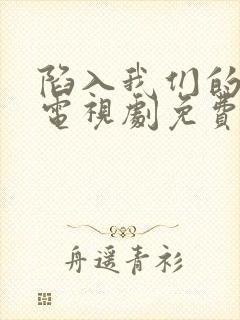 陷入我们的
電視劇免費
舟遥青衫